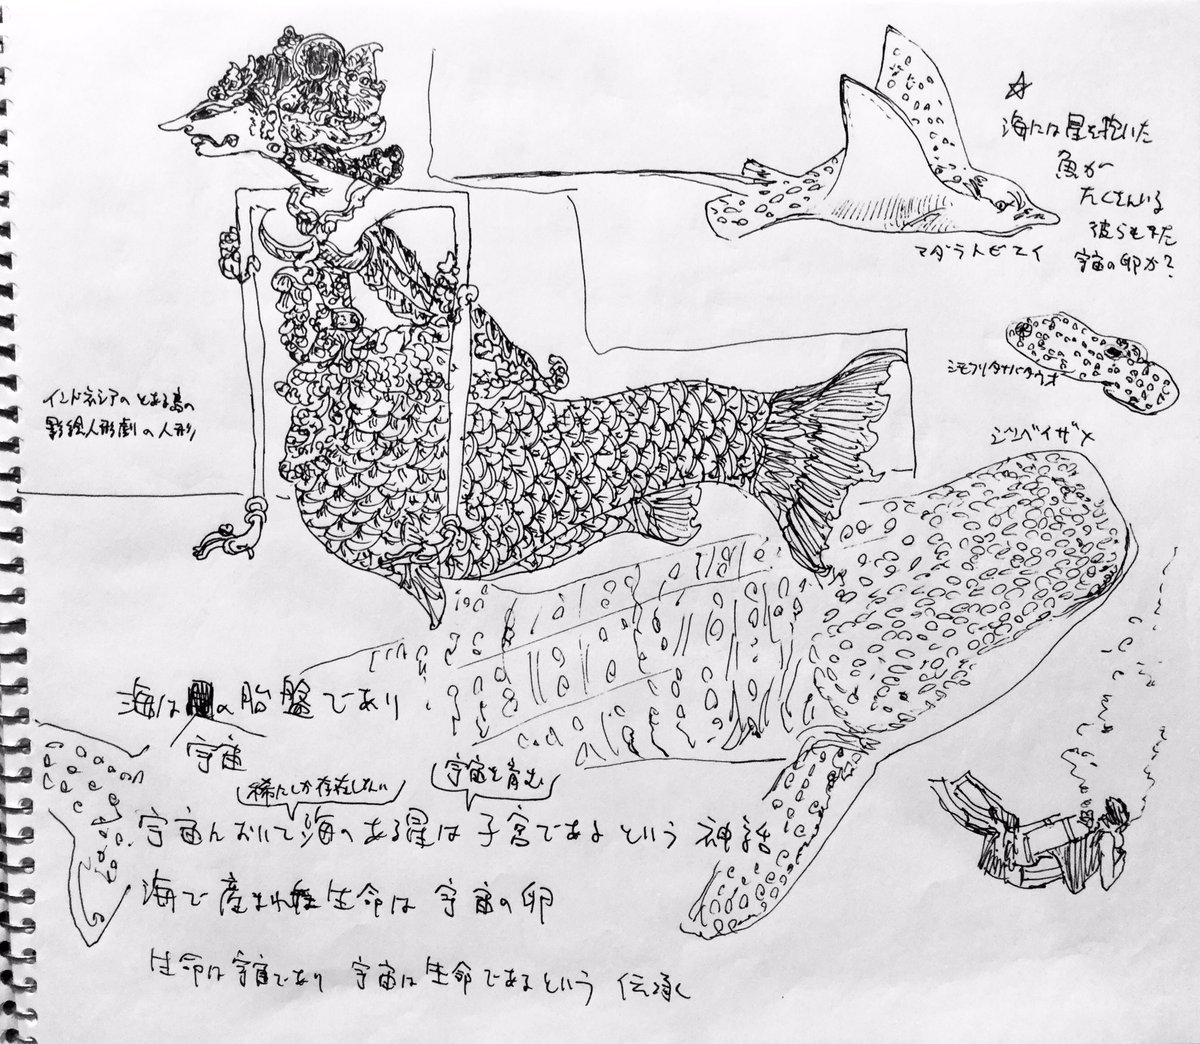 ☆
海には星を抱いた
魚が
たくさんいる
彼らもまた
宇宙の卵か?
マダラトビエイ
シモフリタナバタウオ
ジンベイザメ
インドネシアのとある島の
影絵人形劇の人形
海は の胎盤であり
宇宙
稀にしか存在しない
宇宙を育む
宇宙において海のある星は子宮であるという 神話
海で産まれ 生命は 宇宙の卵
生命は宇宙であり 宇宙は生命であるという 伝承